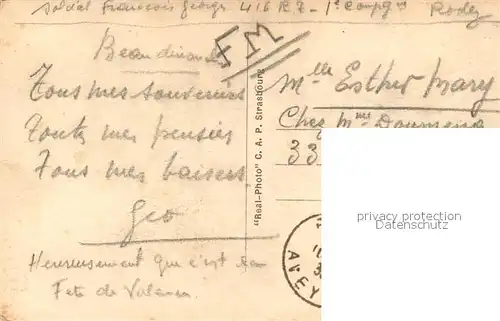 Soldat François George 416 R I - 1e Comp Rodez
Beau dimanche
FM
Tous mes souvenirs
Toutes mes pensées
Tous mes baisers
Géo
Heureusement que c'est la
Fete de Valence
"Real-Photo" C. A. P. Strasbourg
Mlle Esther Mary
Chez Mme
33
AVEY
privacy protection
Datenschutz